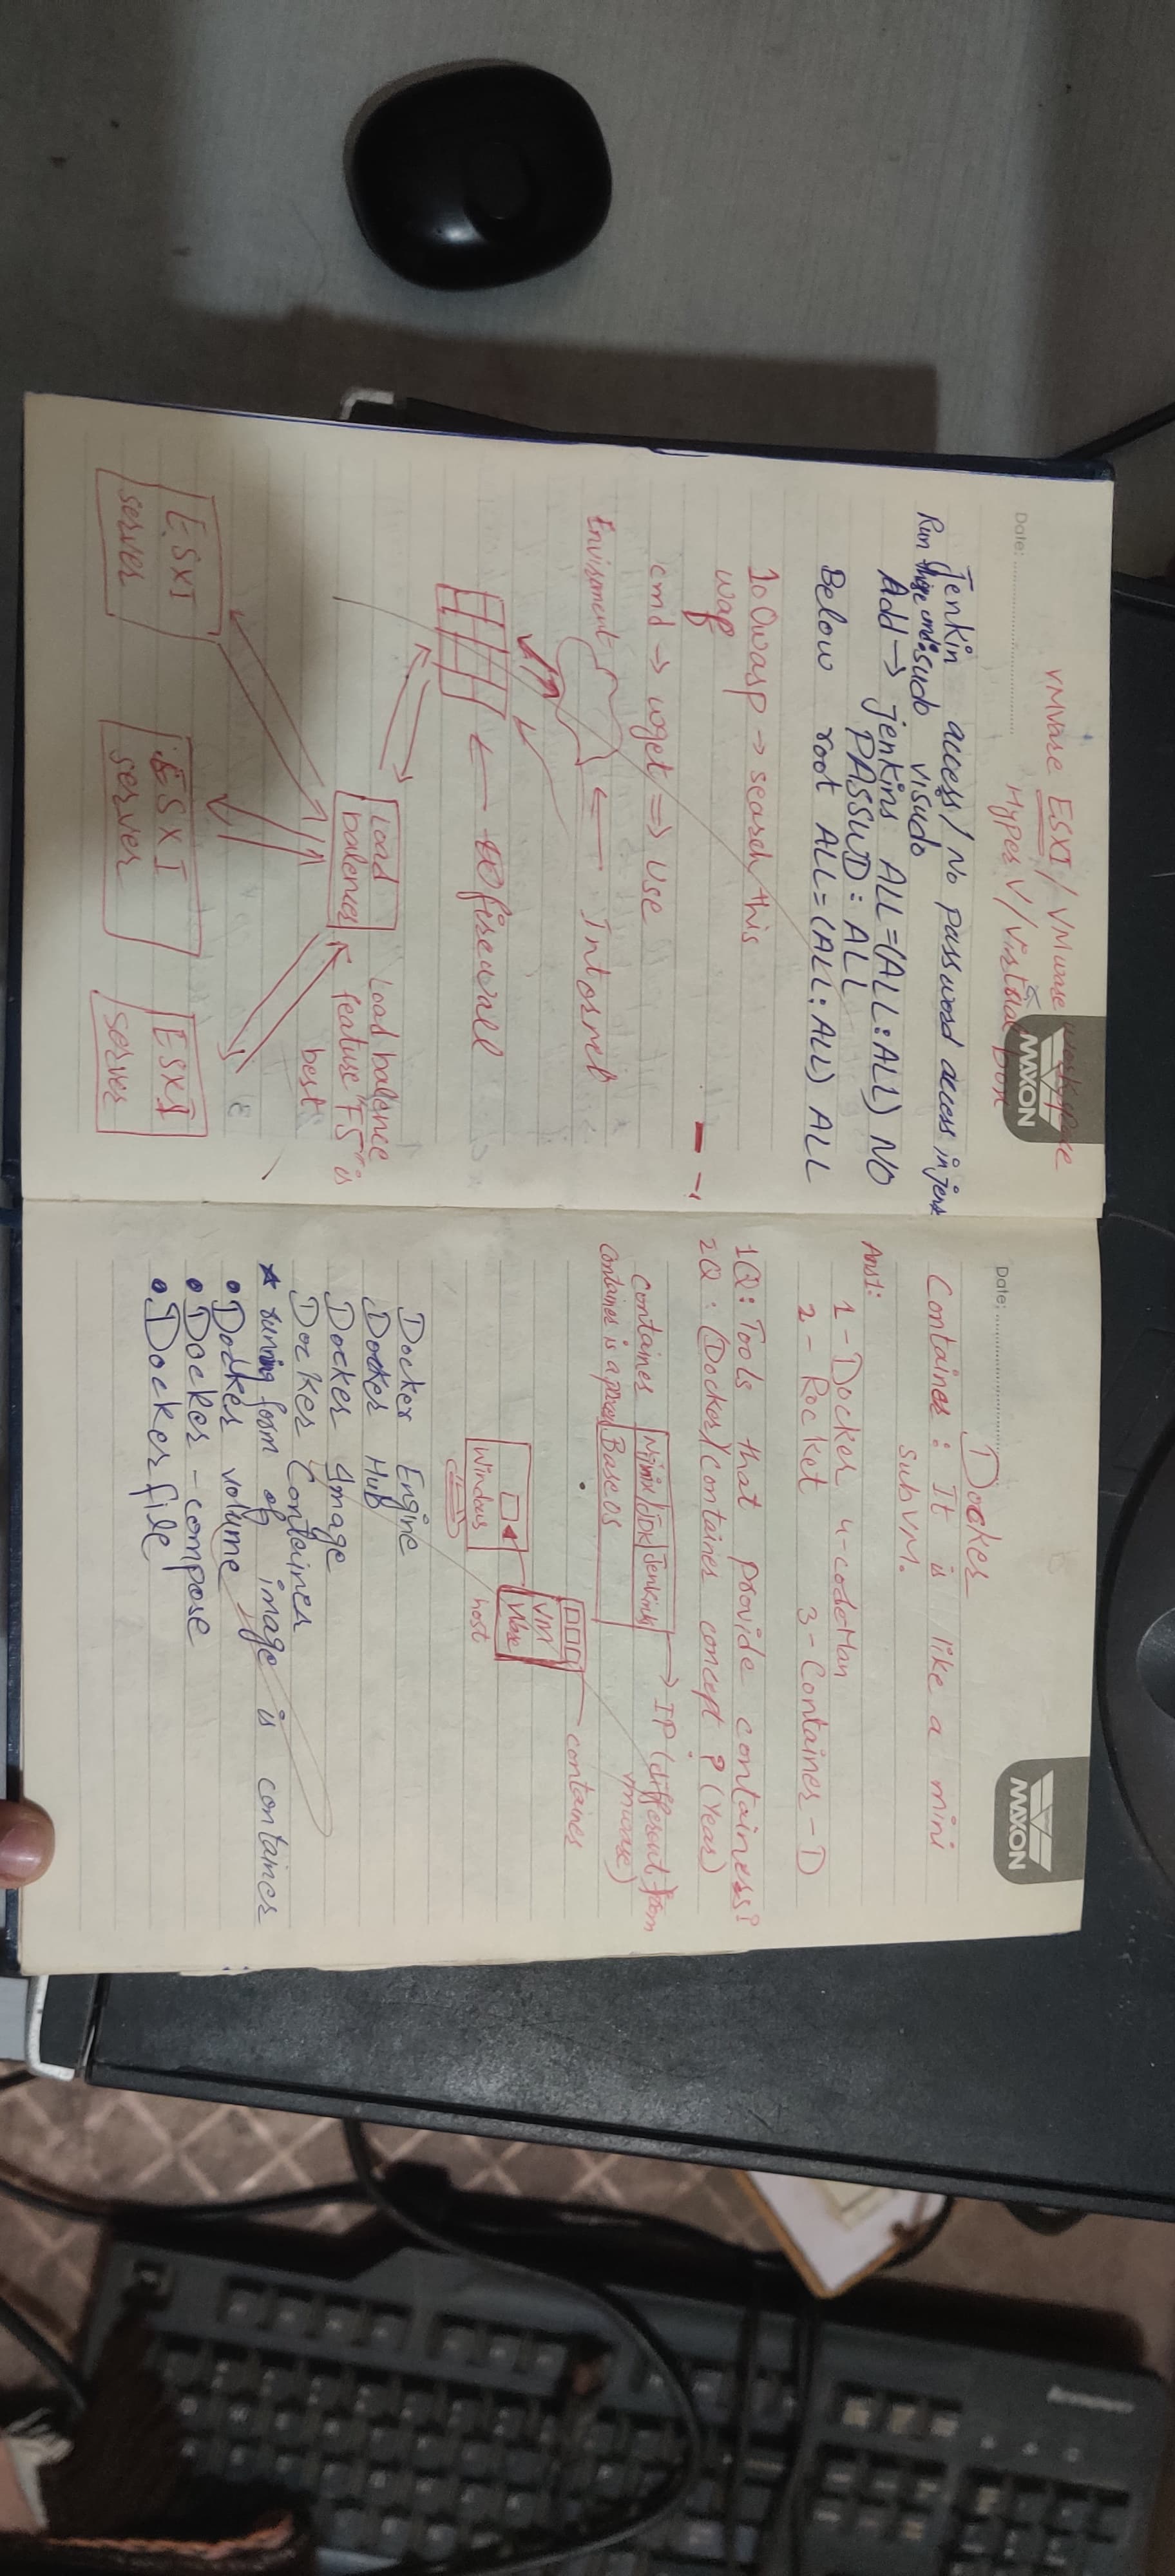 Date:
VMware ESXI / VMware workspace
Hyper V / Virtual box
MAXON
Jenkin access / No password access in jenk
Run this cmd: sudo visudo
Add → jenkins ALL=(ALL:ALL) NO
PASSWD: ALL
Below root ALL=(ALL:ALL) ALL
10 Owasp → search this
wap
cmd → wget => use
Enviroment
← Internet
Vn
← firewall
Load
balencer
Load balence
feature "F5" is
best
ESXI
server
ESXI
server
ESXI
server
Date:
Docker
MAXON
Container : It is like a mini
sub VM.
Ans1:
1 - Docker 4-codeMan
2 - Rocket 3 - Container - D
1Q: Tools that provide containers?
2Q: (Docker)(container concept ? (Year)
Container Nginx JDK Jenkins → IP (different from
vmware)
Container is a Base OS
container
VM
Vbox
Windows
host
Docker Engine
Docker Hub
Docker Image
Docker Container
★ running form of image is container
• Docker volume
• Docker - compose
• Docker file
lenovo